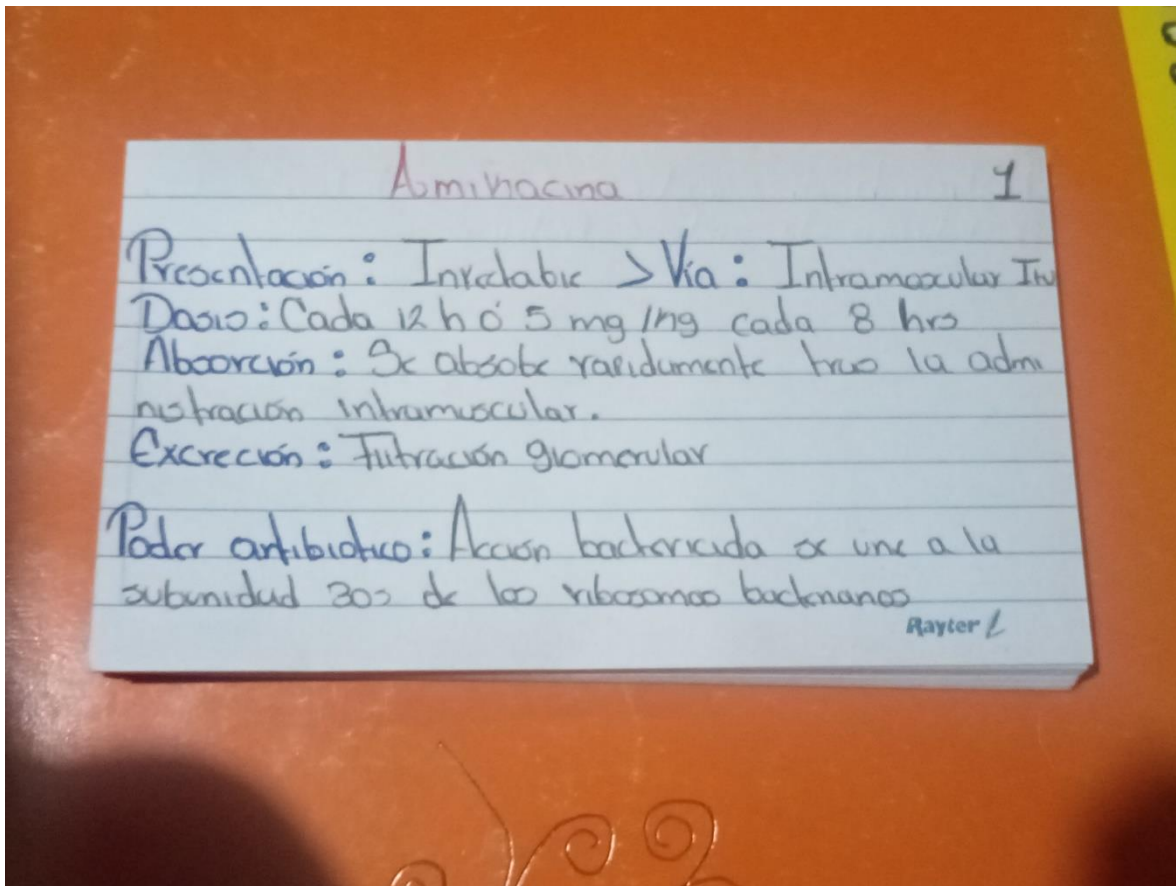 Amikacina 1
Presentación: Inyectable > Vía: Intramuscular
Dosis: Cada 12 h ó 5 mg/kg cada 8 hrs
Absorción: Se absobe rapidamente tras la admi
nistración intramuscular.
Excreción: Filtración glomerular
Poder antibiótico: Acción bactericida se une a la
subunidad 30s de los ribosomas bacterianos
Rayter